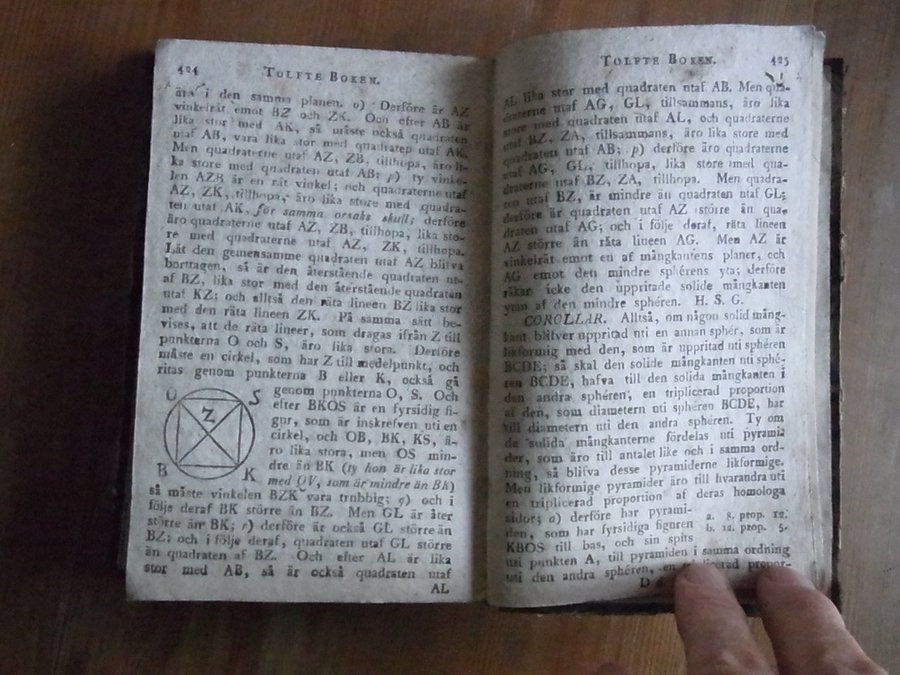 424 TOLFTE BOKEN.
äro i den samma planen. o) Derföre är AZ
vinkelrät emot BZ och ZK. Och efter AB är
lika stor med AK, så måste också quadraten
utaf AB, vara lika stor med quadraten utaf AK.
Men quadraterne utaf AZ, ZB, tillhopa, äro li-
ka store med quadraten utaf AB; p) ty vinke-
len AZB är en rät vinkel; och quadraterne utaf
AZ, ZK, tillhopa, äro lika store med quadra-
ten utaf AK, för samma orsaks skull; derföre
äro quadraterne utaf AZ, ZB, tillhopa, lika sto-
re med quadraterne utaf AZ, ZK, tillhopa.
Låt den gemensamme quadraten utaf AZ blifva
borttagen, så är den återstående quadraten ut-
af BZ, lika stor med den återstående quadraten
utaf KZ; och alltså den räta lineen BZ lika stor
med den räta lineen ZK. På samma sätt be-
vises, att de räta lineer, som dragas ifrån Z till
punkterna O och S, äro lika stora. Derföre
måste en cirkel, som har Z till medelpunkt, och
ritas genom punkterna B eller K, också gå
genom punkterna O, S. Och
efter BKOS är en fyrsidig fi-
gur, som är inskrefven uti en
cirkel, och OB, BK, KS, ä-
ro lika stora, men OS min-
dre än BK (ty hon är lika stor
med QV, som är mindre än BK)
O S
Z
B K
så måste vinkelen BZK vara trubbig; q) och i
följe deraf BK större än BZ. Men GL är åter
större än BK; r) derföre är också GL större än
BZ; och i följe deraf, quadraten utaf GL större
än quadraten af BZ. Och efter AL är lika
stor med AB, så är också quadraten utaf
AL
TOLFTE BOKEN. 425
AL lika stor med quadraten utaf AB. Men qua-
draterne utaf AG, GL, tillsammans, äro lika
store med quadraten utaf AL, och quadraterne
utaf BZ, ZA, tillsammans, äro lika store med
quadraten utaf AB; p) derföre äro quadraterne
utaf AG, GL, tillhopa, lika store med qua-
draterne utaf BZ, ZA, tillhopa. Men quadra-
ten utaf BZ, är mindre än quadraten utaf GL;
derföre är quadraten utaf AZ större än qua-
draten utaf AG; och i följe deraf, räta lineen
AZ större än räta lineen AG. Men AZ är
vinkelrät emot en af mångkantens planer, och
AG emot den mindre sphérens yta; derföre
råkar icke den uppritade solide mångkanten
ytan af den mindre sphéren. H. S. G.
COROLLAR. Alltså, om någon solid mång-
kant blifver uppritad uti en annan sphér, som är
likformig med den, som är uppritad uti sphéren
BCDE; så skal den solide mångkanten uti sphé-
ren BCDE, hafva till den solida mångkanten i
den andra sphéren, en triplicerad proportion
af den, som diametern uti sphéren BCDE, har
till diametern uti den andra sphéren. Ty om
de solida mångkanterne fördelas uti pyrami-
der, som äro till antalet like och i samma ord-
ning, så blifva desse pyramiderne likformige.
Men likformige pyramider äro till hvarandra uti
en triplicerad proportion af deras homologa
sidor; a) derföre har pyrami- a. 8. prop. 12.
den, som har fyrsidiga figuren b. 12. prop. 5.
KBOS till bas, och sin spits
uti punkten A, till pyramiden i samma ordning
uti den andra sphéren, en triplicerad propor-
D